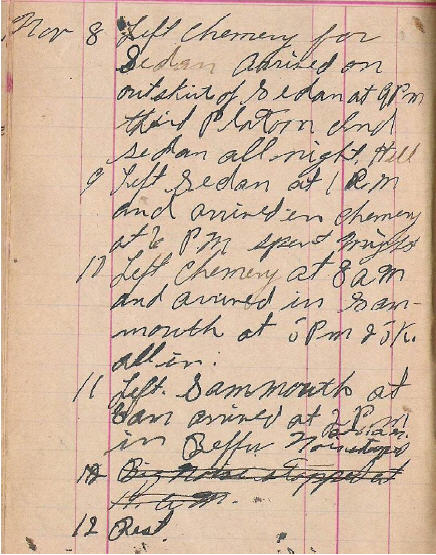 Nov 8 Left Chemery for
Sedan arrived on
outskirt of Sedan at 9 Pm
third Platoon
Sedan all night. Hell
9 Left Sedan at 1 P.M
and arrived in Chemery
at 6 PM spent night
10 Left Chemery at 8 am
and arrived in Sam-
mouth at 5 Pm
all in.
11 Left. Sammouth at
8am arrived at 2 P.m
in Beffu
12 Big noise stopped at
11 a.m.
12 Rest.